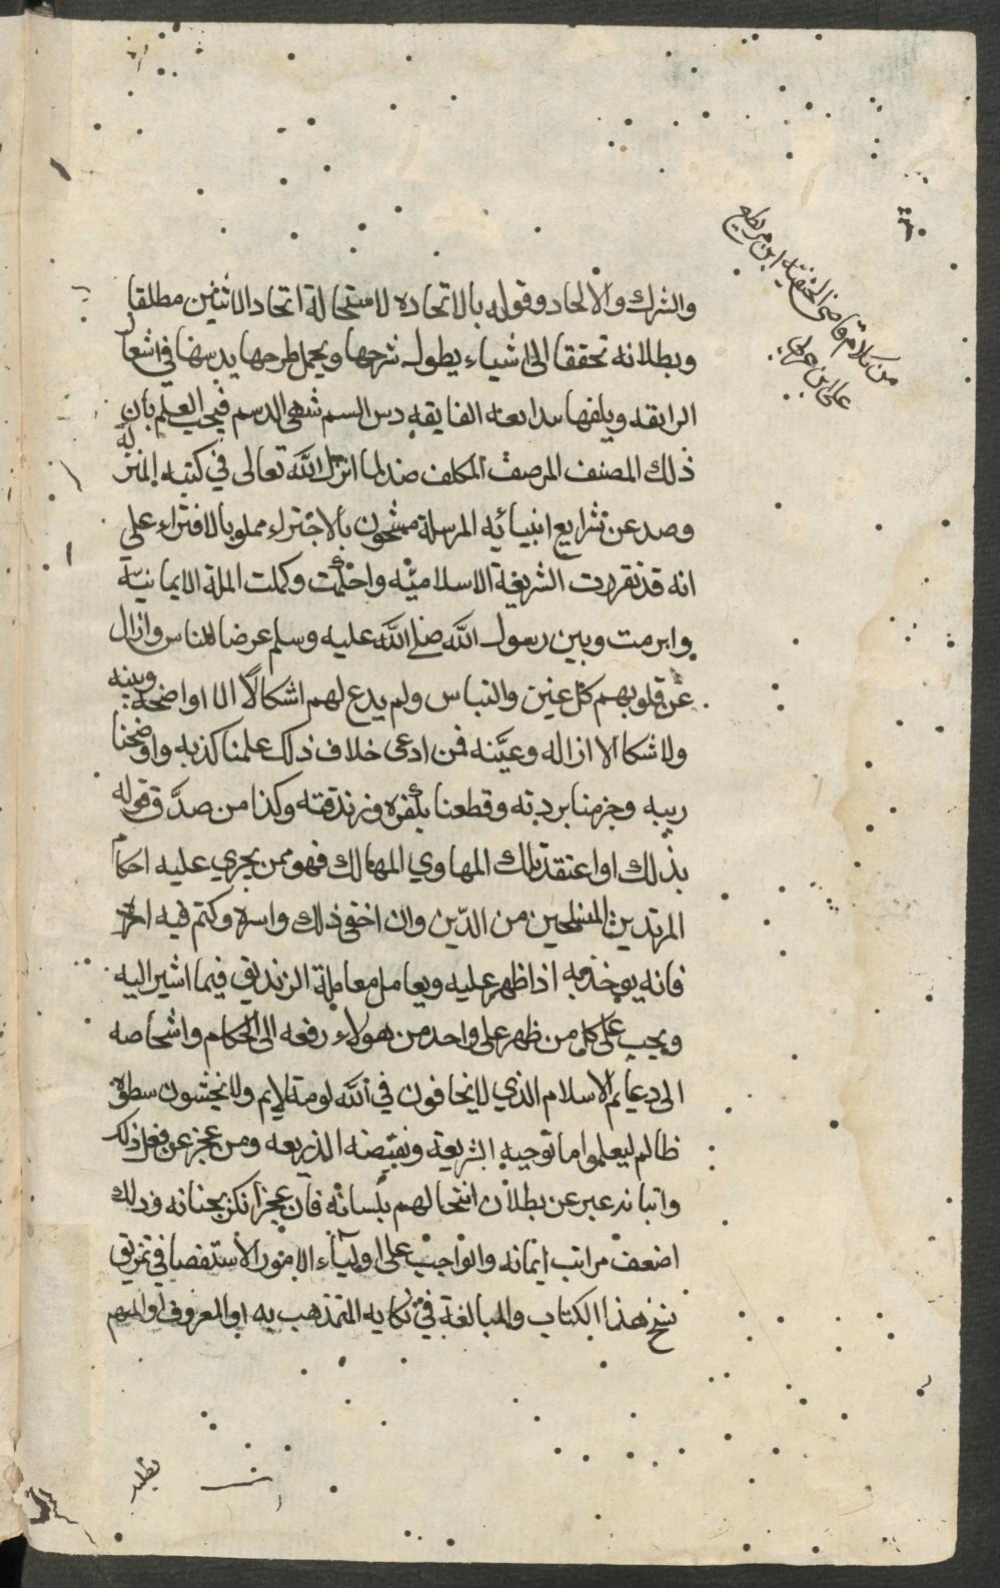 من كلام قاضي الحنفية ابن مريطع
على ابن عربي
والشرك والالحاد وقوله بالاتحاده لاستحالة اتحاد الاثنين مطلقا
وبطلانه تحققا الى اشياء يطول شرحها ويجمل طرحها يدسها في اشعار
الرايقه ويلفها الفايقه دس السم شهي الدسم فيجب العلم بأن
ذلك المصنف المرصف المكلف ضد لما انزل الله تعالى في كتبه المنزلة
وصد عن شرايع انبيائه المرسلة مشحون بالاجتراء مملو بالافتراء على
انه قد تقررت الشريعة الاسلاميّه واحكمت وكملت الملة الايمانيّة
وابرمت وبين رسول الله صلى الله عليه وسلم عرضا للناس وازال
عن قلوبهم كل غين والتباس ولم يدع لهم اشكالًا الا اوضحه وبينه
ولا شكا الا ازاله وعيّنه فمن ادعى خلاف ذلك علمنا كذبه واوضحنا
ريبه وجزمنا بردته وقطعنا بكفره وزندقته وكذا من صدّق قوله
بذلك او اعتقد تلك المهاوي المهالك فهو ممن يجري عليه احكام
المرتدين المنسلخين من الدّين وان اخفى ذلك واسره وكتم فيه امره
فانه يوخذ به اذا ظهر عليه ويعامل معاملة الزنديق فيما اشير اليه
ويجب على كل من ظهر على واحد من هولاء رفعه الى الحكام واشخاصه
الى دعايم الاسلام الذي لا يخافون في الله لومة لايم ولا يخشون سطوة
ظالم ليعلموا ما توجبه الشريعة وتقتضه الذريعه ومن عجز عن فعل ذلك
عبر عن بطلان انتحالهم بلسانه فان عجز انكر بجنانه وذلك
اضعف مراتب ايمانه والواجب على اولياء الامور الاستقصا في تمزيق
نسخ هذا الكتاب والمبالغة في نكايه المتمذهب به او المعروف او المتهم